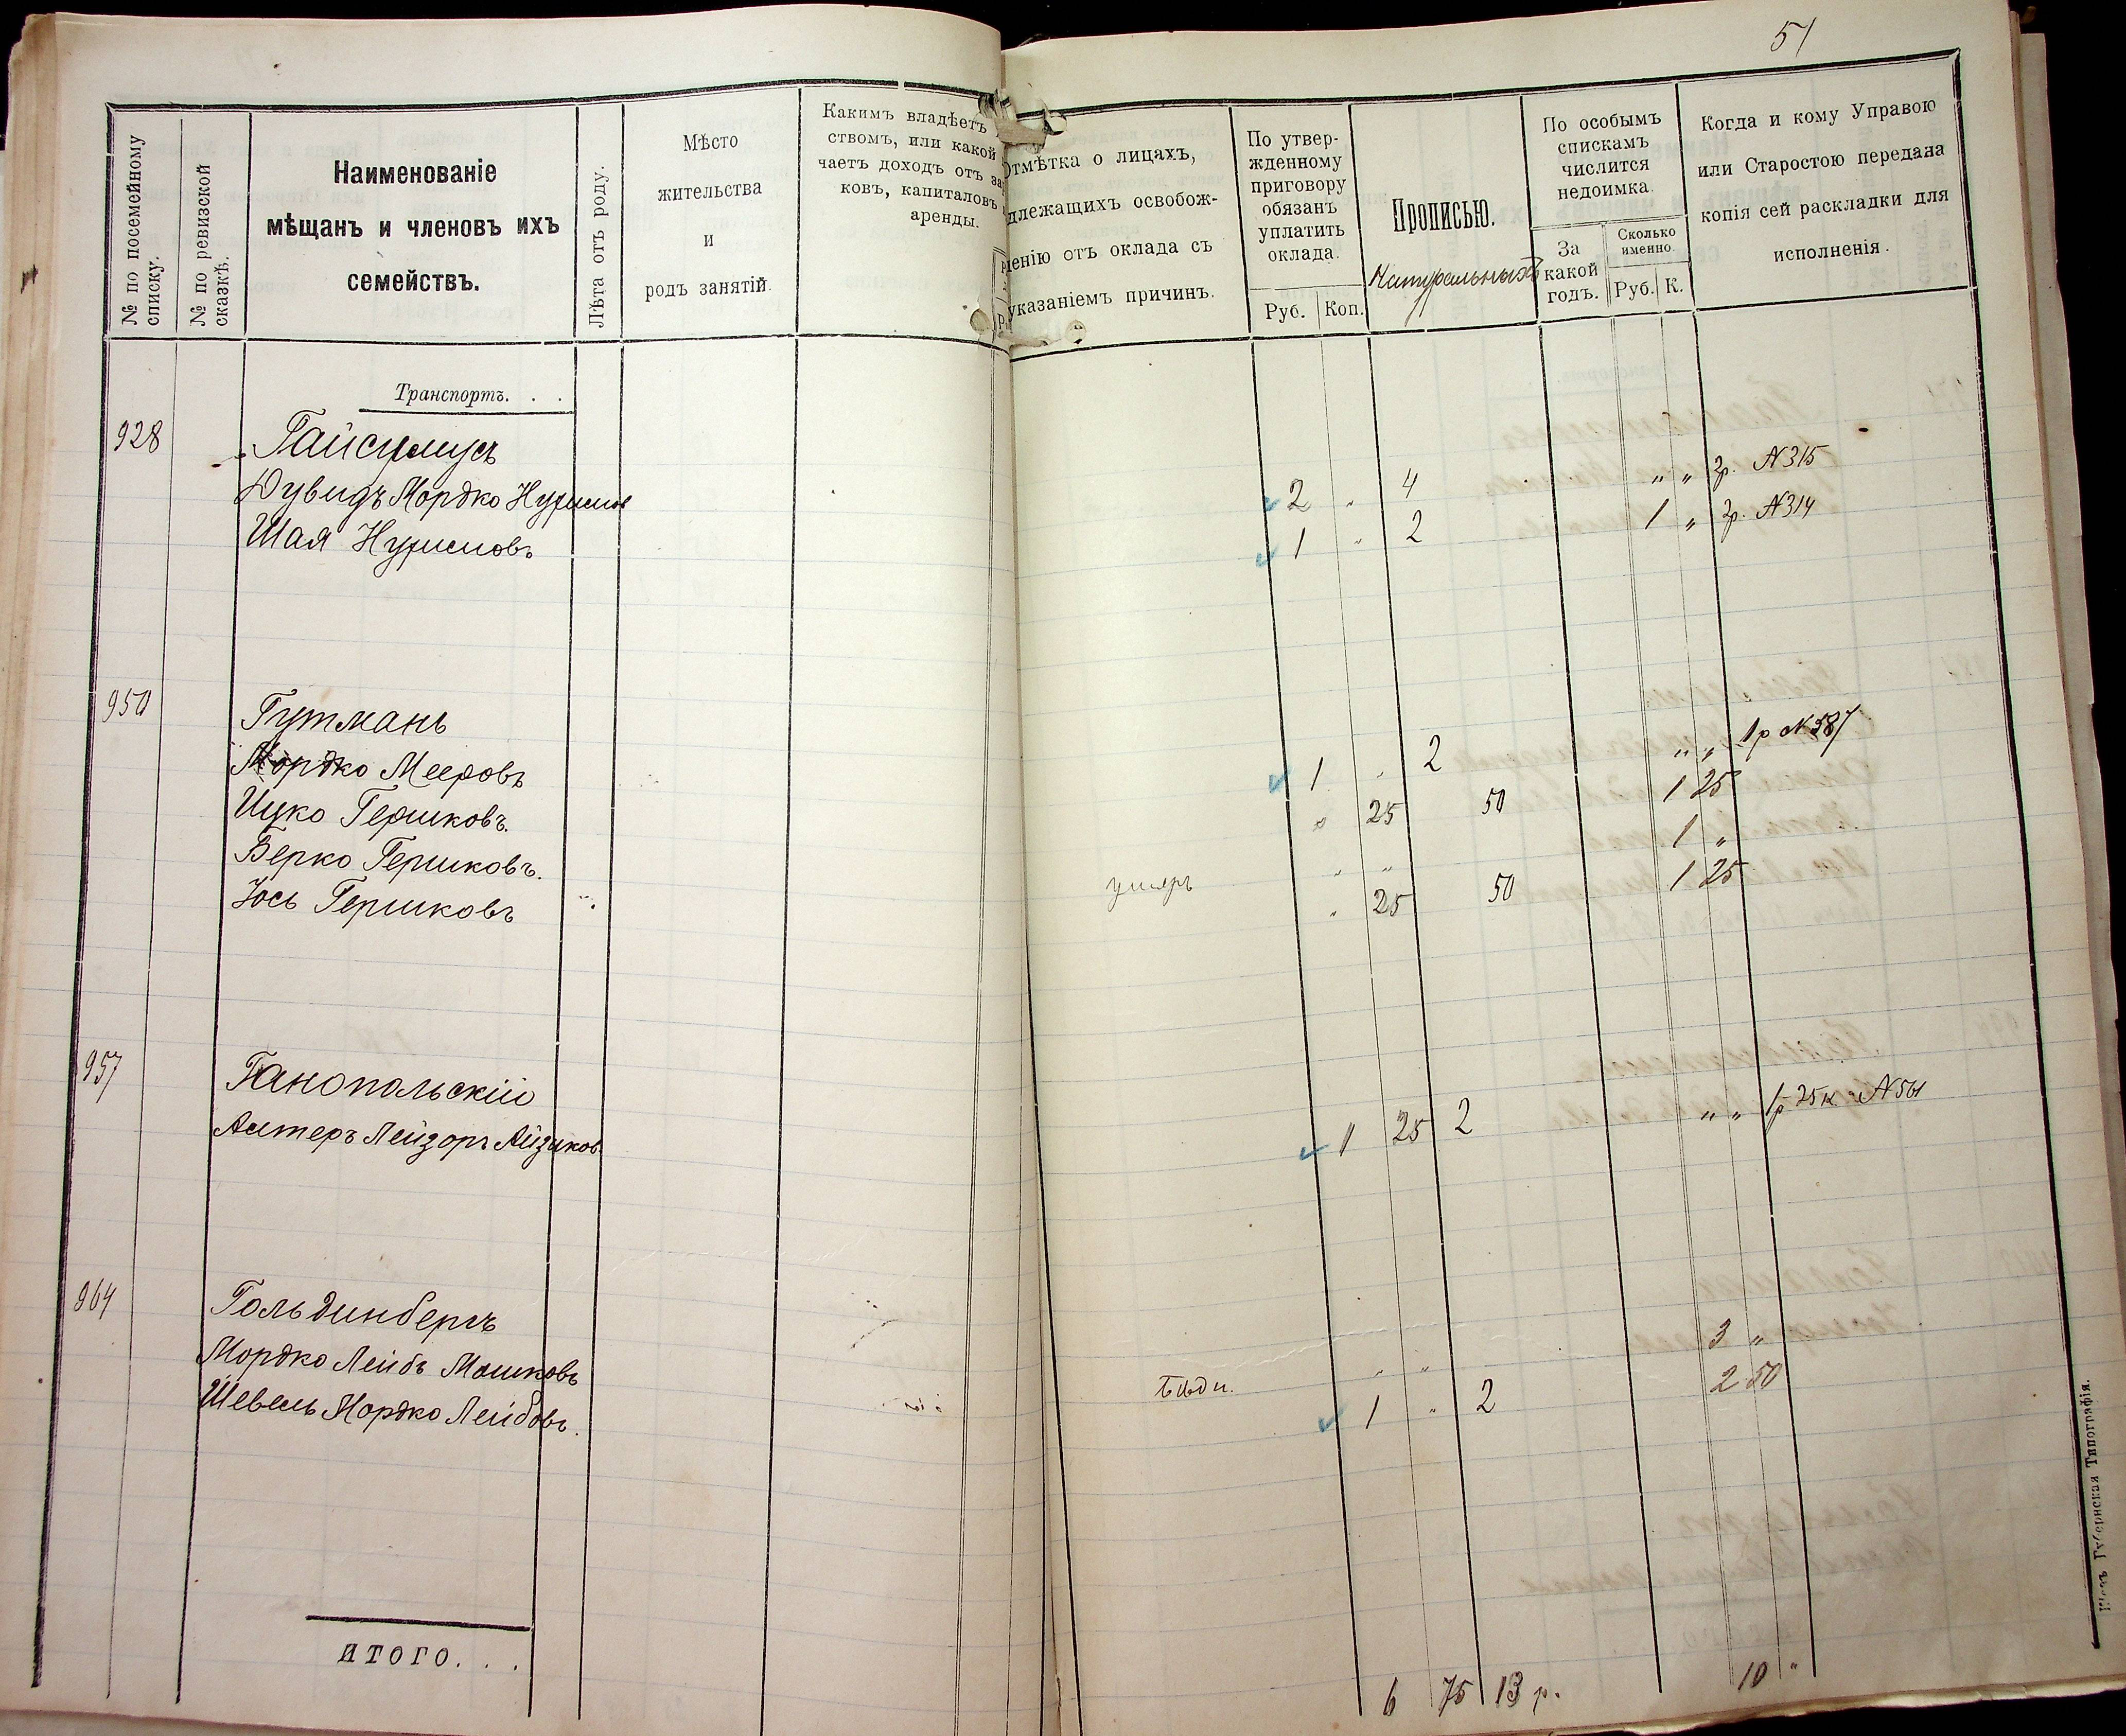 51
№ по посемейному списку.
№ по ревизской сказкѣ.
Наименованіе
мѣщанъ и членовъ ихъ
семействъ.
Лѣта отъ роду.
Мѣсто
жительства
и
родъ занятій.
Какимъ владѣетъ
ствомъ, или какой
чаетъ доходъ отъ за
ковъ, капиталовъ
аренды.
Отмѣтка о лицахъ,
длежащихъ освобож-
денію отъ оклада съ
указаніемъ причинъ.
По утвер-
жденному
приговору
обязанъ
уплатить
оклада.
Руб. Коп.
Прописью.
Натуральныхъ
По особымъ
спискамъ
числится
недоимка.
За
какой
годъ.
Сколько
именно.
Руб. К.
Когда и кому Управою
или Старостою передана
копія сей раскладки для
исполненія.
Транспортъ. . .
928 Гайсумусъ
Дувидъ Мордко Нухимов 2 " 4 " " 2р. №315
Шая Нухимовъ 1 " 2 1 " 2р. №314
950 Гутманъ
Мордко Мееровъ 1 " 2 " " 1р №587
Ицко Гершковъ. " 25 50 1 25
Берко Гершковъ. умеръ " " 1 "
Іось Гершковъ " 25 50 1 25
957 Ганопольскій
Алтеръ Лейзоръ Айзиков. 1 25 2 " " 1р 25к №561
964 Гольдинбергъ
Мордко Лейбъ Мошковъ " " 3 "
Шевель Мордко Лейбовъ. 1 " 2 2 50
ИТОГО. . .
6 75 13 р. 10 "
Губернская Типографія.